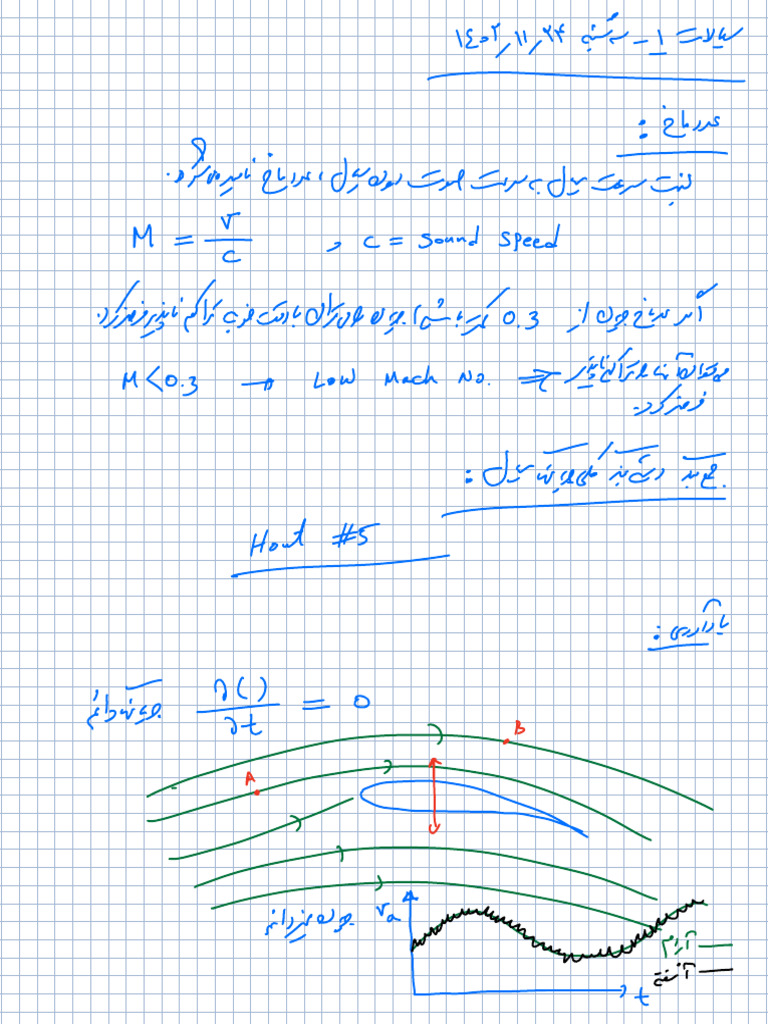 سیالات ۱ - سه‌شنبه ۱۴۰۲/۱۱/۲۴
عدد ماخ :
نسبت سرعت سیال به سرعت صوت درون سیال، عدد ماخ نامیده می‌شود.
M = V/c , c = Sound Speed
اگر عدد ماخ جریان از 0.3 کمتر باشد، جریان را می‌توان با دقت خوب تراکم ناپذیر فرض کرد.
M<0.3 → Low Mach No. ⇒ می‌توان آنها را تراکم ناپذیر
فرض کرد.
جمع‌بندی دسته‌بندی کلی جریان سیال :
Hout #5
یادآوری :
جریان دائم ∂( )/∂t = 0
B
A
جریان غیر دائم
Va
آرام
آشفته
t